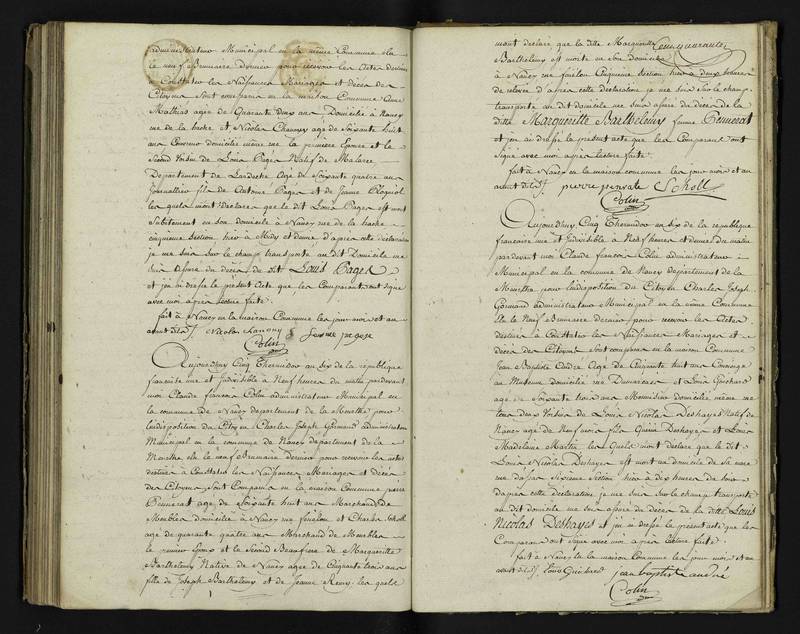 administrateur Municipal en la même Commune élu
le neuf Brumaire dernier pour recevoir les Actes destinés
à Constater les Naissances Mariages et décès des
Citoyens sont comparus en la maison Commune Anne
Mathias agée de Quarante deux ans Domiciliée à Nancy
rue de la hache et Nicolas Chanony agé de Soixante huit
ans Cordonnier domicilié même rue la premiere Epouse et le
Second Voisin de Louis Pages Natif de
Departement de Lardeche agé de Soixante quatre ans
Journallier fils de Antoine Pages et de Jeanne
les quels m'ont declaré que le dit Louis Pages est mort
Subitement en son domicile à Nancy rue de la hache
cinquieme Section hier à Midy et demie, d'apres cette declaration
je me suis sur le champ transporté au dit Domicile me
suis assuré du décès du dit Louis Pages
et j'en ai dressé le present Acte que les Comparants ont signé
avec moi après lecture faite
fait à Nancy en la maison Commune les jour mois et an
avant dits Nicolas Chanony
Colin
Aujourdhuy Cinq Thermidor an six de la republique
francaise une et Indivisible à Neuf heures du matin pardevant
moi Claude francois Colin administrateur Municipal en
la commune de Nancy departement de la Meurthe pour
l'indisposition du Citoyen Charles Joseph Gormand administrateur
Municipal en la commune de Nancy departement de la
Meurthe élu le neuf Brumaire dernier pour recevoir les actes
destinés à Constater les Naissances Mariages et décès
des Citoyens sont Comparus en la maison Commune pierre
Penverat agé de Soixante huit ans Marchand de
Meubles domicilié à Nancy rue fénélon et Charles Scholl
agé de quarante quatre ans Marchand de Meubles
le premier Epoux et le Second Beaufrere de Marguerite
Barthelemy Native de Nancy agée de Cinquante trois ans
fille de Joseph Barthelemy et de Jeanne Remy. les quels
mont declaré que la ditte Marguerite
Barthelemy est morte en son domicile
à Nancy rue fénélon Cinquieme Section hier à deux heures
de relevée d'après cette declaration je me suis sur le champ
transporté au dit domicile me suis assuré du décès de la
ditte Margueritte Barthelemy femme Penverat
et j'en ai dressé le present acte que les Comparans ont
Signé avec moi après lecture faite
fait à Nancy en la maison commune les jour mois et an
avant dits pierre Scholl
Colin
Aujourdhuy Cinq Thermidor an six de la republique
francaise une et Indivisible à Neuf heures et demie du matin
pardevant moi Claude francois Colin administrateur
Municipal en la commune de Nancy departement de la
Meurthe pour l'indisposition du Citoyen Charles Joseph
Gormand administrateur Municipal en la même Commune
élu le Neuf Brumaire dernier pour recevoir les Actes
destinés à Constater les Naissances Mariages et
décès des Citoyens sont comparus en la maison Commune
Jean Baptiste André agé de Cinquante huit ans
au Museum domicilié rue et Louis Guichard
agé de Soixante trois ans Menuisier domicilié même rue
tous deux Voisins de Louis Nicolas Deshayes Natif de
Nancy agé de Neuf mois fils Deshayes et Louise
Madelaine Martin les quels mont declaré que le dit
Louis Nicolas Deshayes est mort au domicile de sa mere
rue Sixieme Section hier à dix heures du soir
d'après cette declaration je me suis sur le champ transporté
au dit domicile me suis assuré du décès du ditte Louis
Nicolas Deshayes et j'en ai dressé le present acte que les
Comparans ont signé avec moi après lecture faite
fait à Nancy en la maison Commune les jour mois et an
avant dits Louis Guichard jean baptiste andré
Colin